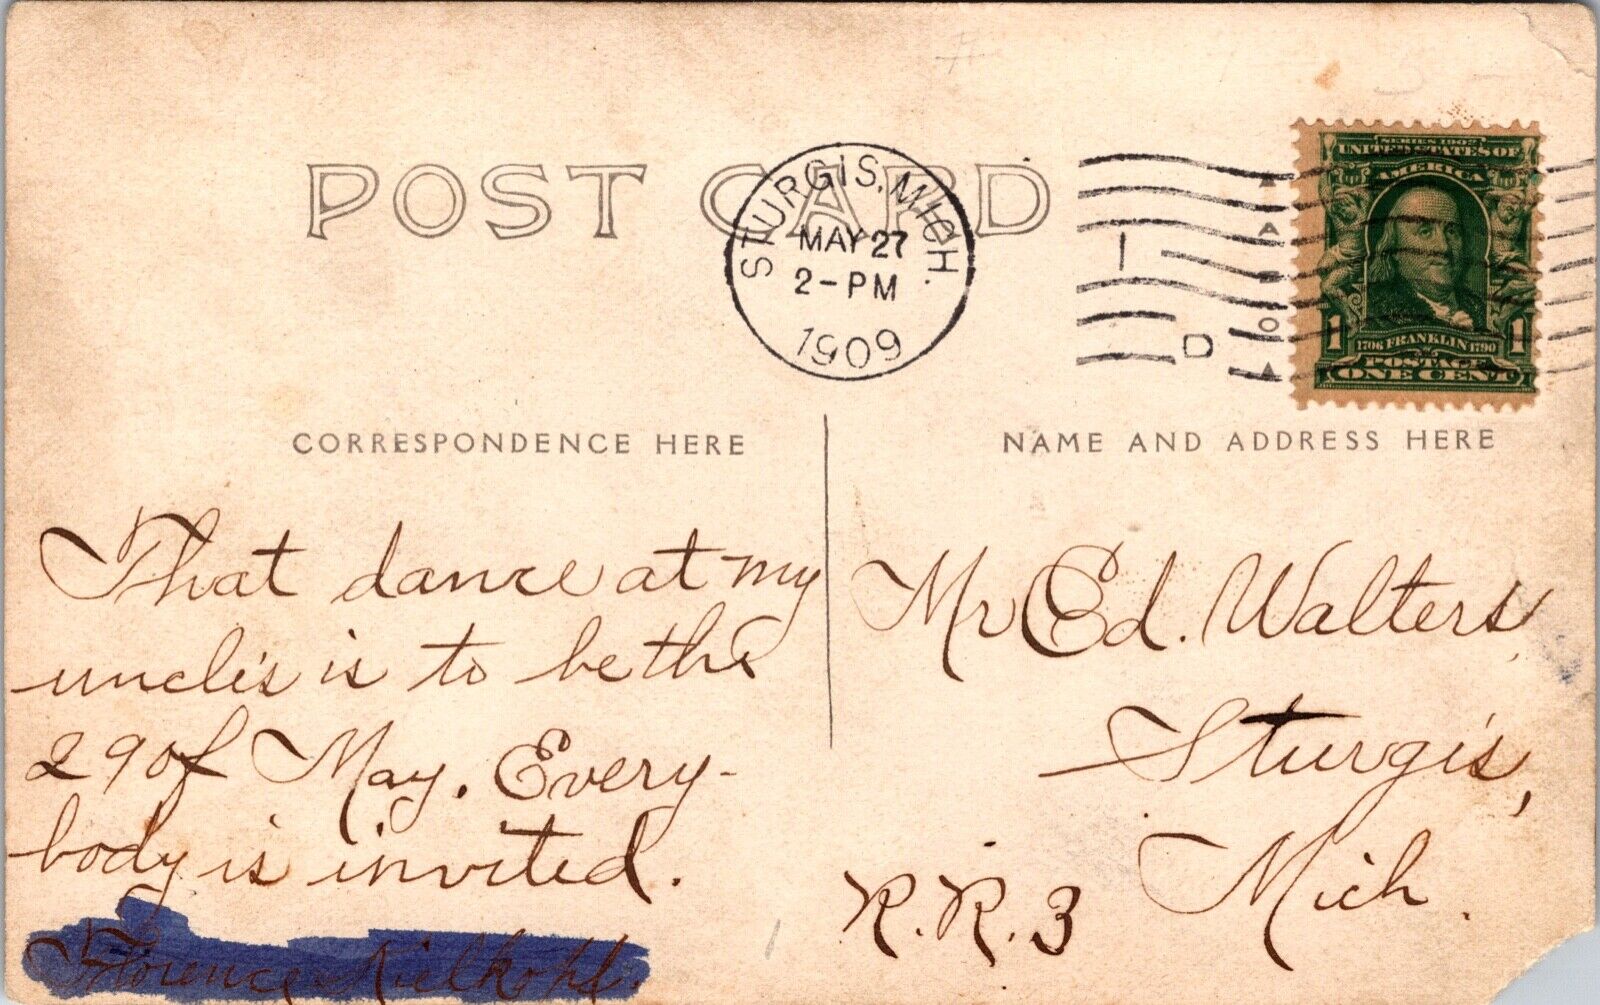 POST CARD
STURGIS, MICH.
MAY 27
2-PM
1909
SERIES 1902
UNITED STATES OF
AMERICA
1 1
1706 FRANKLIN 1790
POSTAGE
ONE CENT
CORRESPONDENCE HERE
NAME AND ADDRESS HERE
That dance at my
uncle's is to be the
29 of May. Every-
body is invited.
Florence
Mr Ed. Walters,
Sturgis,
Mich.
R.R. 3